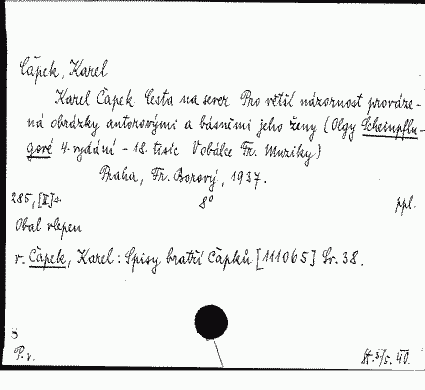 Čapek, Karel
Karel Čapek Cesta na sever Pro větší názornost prováze-
ná obrázky autorovými a básněmi jeho ženy (Olgy Scheinpflu-
gové 4. vydání - 18. tisíc V obálce Fr. Muziky)
Praha, Fr. Borový, 1937.
285, [II] s. 8° ppl.
Obal vlepen
v. Čapek, Karel: Spisy bratří Čapků [111065] Sv. 38.
P. v.